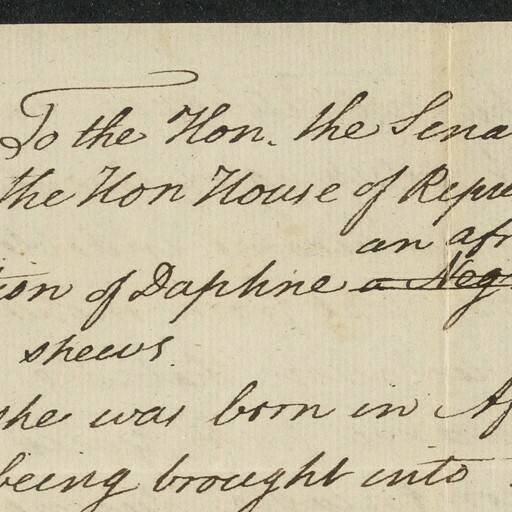 To the Hon. the Sena
the Hon House of Repre
an afr
tion of Daphne a Neg
shews
she was born in Af
being brought into